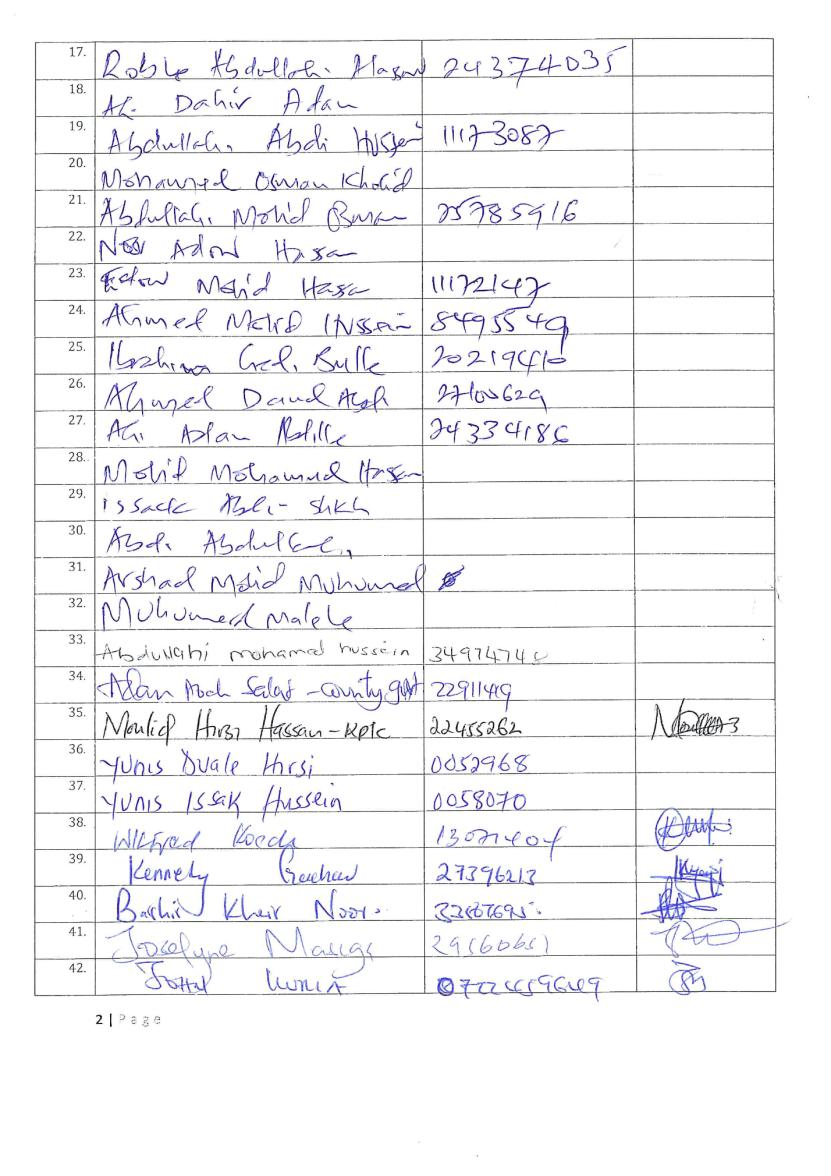 17. Roble Abdullahi Hasan 24374035
18. Ali Dahir Adan
19. Abdullahi Abdi Hussein 11173087
20. Mohamed Osman Kholid
21. Abdullahi Molid 25785916
22. Adow Hasan
23. Edow Molid Hasan 11172147
24. Ahmed Molid Hussein 8495549
25. Ibrahim Bulle 20219410
26. Ahmed Daud 27100629
27. Ali Adan Abdille 24334186
28. Molid Mohamed Hasan
29. issack Abdi
30. Abdi
31. Arshad Molid Muhumed
32. Muhumed Malele
33. Abdullahi mohamed hussein
34. Adan Abdi Salat - county gvt 22911419
35. Moulid Hirsi Hassan - KPLC 22455262
36. Yunis Duale Hirsi 0052968
37. Yunis Issak Hussein 0058070
38. Wilfred
39. Kennedy 27396213
40. Bashir Kheir Noor.
41. Jocelyne
42.
2 | Page